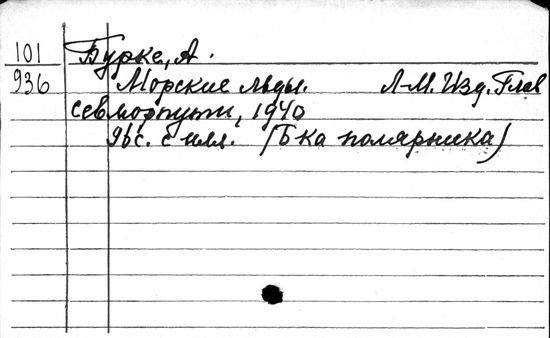 101 Бурке, А.
936 Морские льды. Л-М. Изд. Глав
севморпути, 1940
96с. с илл. (Б-ка полярника)